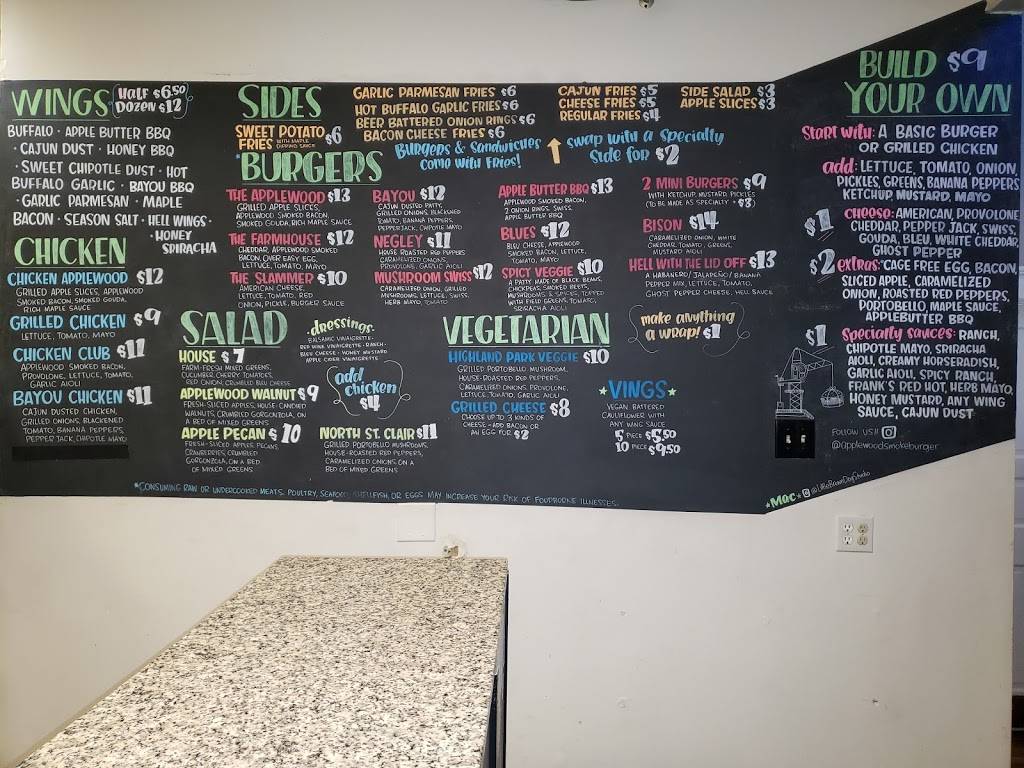 WINGS HALF $6.50
DOZEN $12
BUFFALO · APPLE BUTTER BBQ
· CAJUN DUST · HONEY BBQ
· SWEET CHIPOTLE DUST · HOT
BUFFALO GARLIC · BAYOU BBQ
· GARLIC PARMESAN · MAPLE
BACON · SEASON SALT · HELL WINGS ·
· HONEY
SRIRACHA
CHICKEN
CHICKEN APPLEWOOD $12
GRILLED APPLE SLICES, APPLEWOOD
SMOKED BACON, SMOKED GOUDA,
RICH MAPLE SAUCE
GRILLED CHICKEN $9
LETTUCE, TOMATO, MAYO
CHICKEN CLUB $11
APPLEWOOD SMOKED BACON,
PROVOLONE, LETTUCE, TOMATO,
GARLIC AIOLI
BAYOU CHICKEN $11
CAJUN DUSTED CHICKEN,
GRILLED ONIONS, BLACKENED
TOMATO, BANANA PEPPERS,
PEPPER JACK, CHIPOTLE MAYO
SIDES
SWEET POTATO
FRIES WITH MAPLE
DIPPING SAUCE $6
GARLIC PARMESAN FRIES $6
HOT BUFFALO GARLIC FRIES $6
BEER BATTERED ONION RINGS $6
BACON CHEESE FRIES $6
CAJUN FRIES $5
CHEESE FRIES $5
REGULAR FRIES $4
SIDE SALAD $3
APPLE SLICES $3
BURGERS & SANDWICHES
COME WITH FRIES!
SWAP WITH A SPECIALTY
SIDE FOR $2
*BURGERS
THE APPLEWOOD $13
GRILLED APPLE SLICES,
APPLEWOOD SMOKED BACON,
SMOKED GOUDA, RICH MAPLE SAUCE
THE FARMHOUSE $12
CHEDDAR, APPLEWOOD SMOKED
BACON, OVER EASY EGG,
LETTUCE, TOMATO, MAYO
THE SLAMMER $10
AMERICAN CHEESE,
LETTUCE, TOMATO, RED
ONION, PICKLE, BURGER SAUCE
BAYOU $12
CAJUN DUSTED PATTY,
GRILLED ONIONS, BLACKENED
TOMATO, BANANA PEPPERS,
PEPPERJACK, CHIPOTLE MAYO
NEGLEY $11
HOUSE ROASTED RED PEPPERS,
CARAMELIZED ONIONS,
PROVOLONE, GARLIC AIOLI
MUSHROOM SWISS $12
CARAMELIZED ONION, GRILLED
MUSHROOMS, LETTUCE, SWISS,
HERB MAYO, TOMATO
APPLE BUTTER BBQ $13
APPLEWOOD SMOKED BACON,
2 ONION RINGS, SWISS,
APPLE BUTTER BBQ
BLUES $12
BLEU CHEESE, APPLEWOOD
SMOKED BACON, LETTUCE,
TOMATO, MAYO
SPICY VEGGIE $10
A PATTY MADE OF BLACK BEANS,
CHICKPEAS, SMOKED BEETS,
MUSHROOMS & SPICES, TOPPED
WITH FIELD GREENS, TOMATO,
SRIRACHA AIOLI
2 MINI BURGERS $9
WITH KETCHUP, MUSTARD, PICKLES
(TO BE MADE AS SPECIALTY + $8)
BISON $14
CARAMELIZED ONION, WHITE
CHEDDAR, TOMATO, GREENS,
MUSTARD AIOLI
HELL WITH THE LID OFF $13
A HABANERO / JALAPEÑO / BANANA
PEPPER MIX, LETTUCE, TOMATO,
GHOST PEPPER CHEESE, HELL SAUCE
MAKE ANYTHING
A WRAP! $1
SALAD
· DRESSINGS ·
BALSAMIC VINAIGRETTE ·
RED WINE VINAIGRETTE · RANCH ·
BLEU CHEESE · HONEY MUSTARD
APPLE CIDER VINAIGRETTE
HOUSE $7
FARM-FRESH MIXED GREENS,
CUCUMBER, CHERRY TOMATOES,
RED ONION, CRUMBLED BLEU CHEESE
APPLEWOOD WALNUT $9
FRESH-SLICED APPLES, HOUSE-CANDIED
WALNUTS, CRUMBLED GORGONZOLA, ON
A BED OF MIXED GREENS
APPLE PECAN $10
FRESH-SLICED APPLES, PECANS,
CRANBERRIES, CRUMBLED
GORGONZOLA, ON A BED
OF MIXED GREENS
ADD
CHICKEN
$4
NORTH ST. CLAIR $11
GRILLED PORTOBELLO MUSHROOMS,
HOUSE-ROASTED RED PEPPERS,
CARAMELIZED ONIONS ON A
BED OF MIXED GREENS
VEGETARIAN
HIGHLAND PARK VEGGIE $10
GRILLED PORTOBELLO MUSHROOM,
HOUSE-ROASTED RED PEPPERS,
CARAMELIZED ONIONS, PROVOLONE,
LETTUCE, TOMATO, GARLIC AIOLI
GRILLED CHEESE $8
CHOOSE UP TO 3 KINDS OF
CHEESE - ADD BACON OR
AN EGG FOR $2
*VINGS*
VEGAN BATTERED
CAULIFLOWER WITH
ANY WING SAUCE
5 PIECE $5.50
10 PIECE $9.50
BUILD $9
YOUR OWN
START WITH: A BASIC BURGER
OR GRILLED CHICKEN
ADD: LETTUCE, TOMATO, ONION,
PICKLES, GREENS, BANANA PEPPERS
KETCHUP, MUSTARD, MAYO
$1 CHOOSE: AMERICAN, PROVOLONE
CHEDDAR, PEPPER JACK, SWISS,
GOUDA, BLEU, WHITE CHEDDAR,
GHOST PEPPER
$2 EXTRAS: *CAGE FREE EGG, BACON
SLICED APPLE, CARAMELIZED
ONION, ROASTED RED PEPPERS,
PORTOBELLO, MAPLE SAUCE,
APPLEBUTTER BBQ
$1 SPECIALTY SAUCES: RANCH,
CHIPOTLE MAYO, SRIRACHA
AIOLI, CREAMY HORSERADISH,
GARLIC AIOLI, SPICY RANCH,
FRANK'S RED HOT, HERB MAYO,
HONEY MUSTARD, ANY WING
SAUCE, CAJUN DUST
FOLLOW US!!
@applewoodsmokeburger
*CONSUMING RAW OR UNDERCOOKED MEATS, POULTRY, SEAFOOD, SHELLFISH, OR EGGS MAY INCREASE YOUR RISK OF FOODBORNE ILLNESSES.
*Mac*